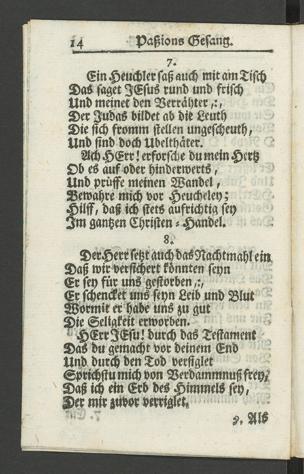 14 Paßions Gesang.
7.
Ein Heuchler saß auch mit am Tisch
Das saget JEsus rund und frisch
Und meinet den Verrähter ,:,
Der Judas bildet ab die Leuth
Die sich fromm stellen ungescheuth,
Und sind doch Ubelthäter.
Ach HErr! erforsche du mein Hertz
Ob es auf oder hinderwerts,
Und prüffe meinen Wandel,
Bewahre mich vor Heucheley;
Hilff, daß ich stets aufrichtig sey
Im gantzen Christen-Handel.
8.
Der Herr setzt auch das Nachtmahl ein
Daß wir versichert könnten seyn
Er sey für uns gestorben ,:,
Er schencket uns seyn Leib und Blut
Wormit er habe uns zu gut
Die Seligkeit erworben.
HErr JEsu! durch das Testament
Das du gemacht vor deinem End
Und durch den Tod versiglet
Sprichstu mich von Verdammnuß frey,
Daß ich ein Erb des Himmels sey,
Der mir zuvor verriglet.
9. Als